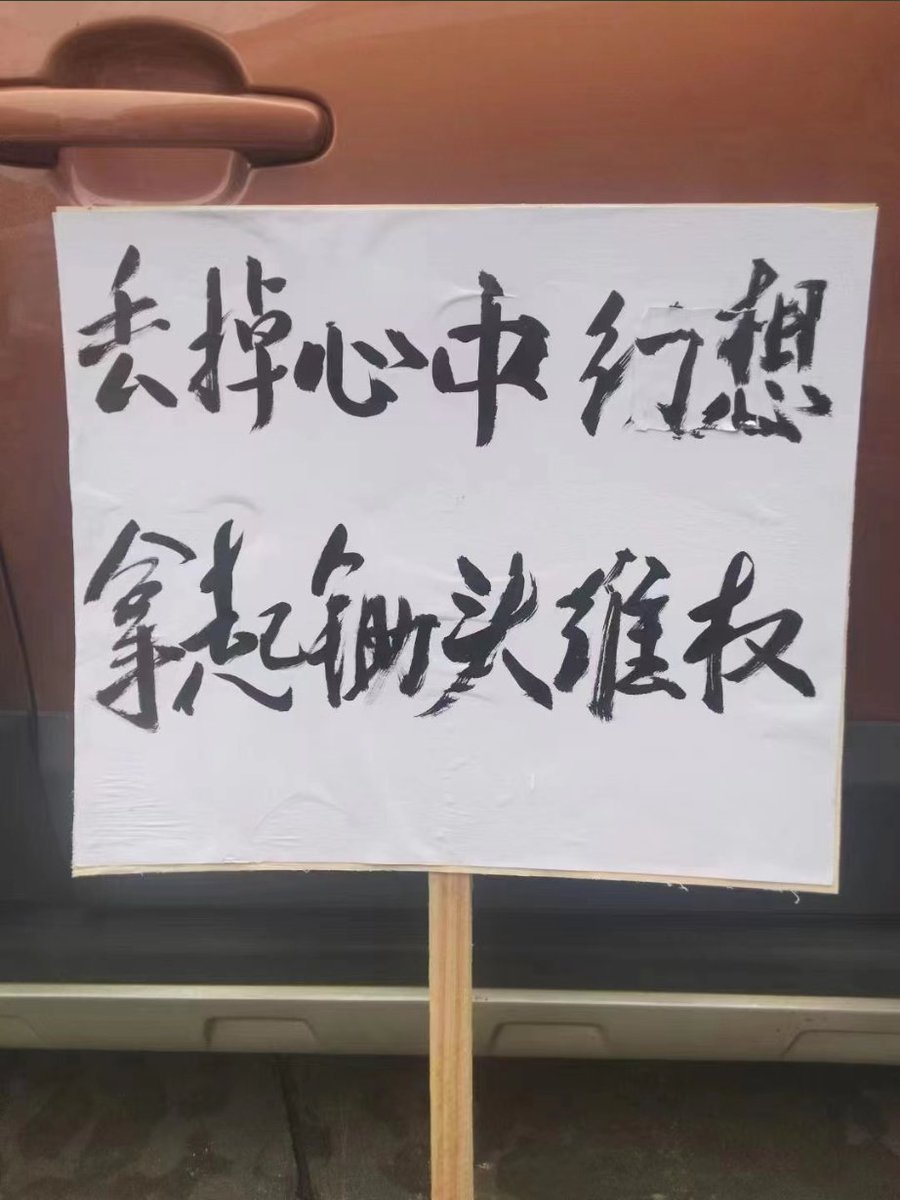 丢掉心中幻想
拿起锄头维权